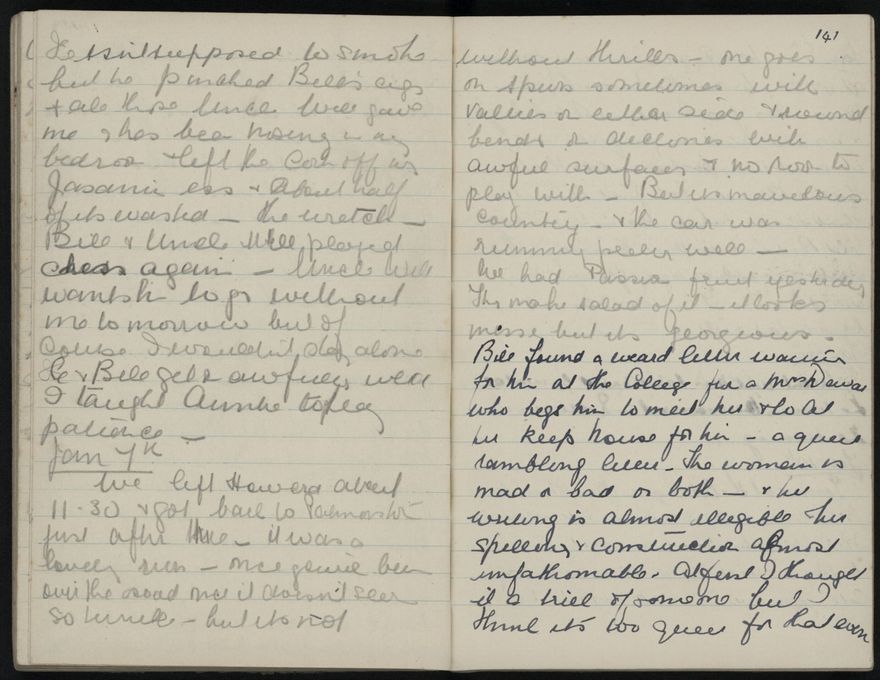 He isn't supposed to smoke
but he pinched Bill's cigs
& ate those Uncle Will gave
me & has been nosing in my
bedroom & left the cork off my
Jasamin ess & about half
of its wasted – the wretch –
Bill & Uncle Will played
chess again – Uncle Will
wants him to go without
me tomorrow but of
course I wouldn't stay alone
He & Bill get on awfully well
I taught Auntie to play
patience –
Jan 7th
We left Howard about
11-30 & got back to
just after three – it was a
lovely run – once you've been
over the road once it doesn't seem
so – but its not
141
without thrills – one goes
on spurs sometimes with
vallies on either side & round
bends & declines with
awful surfaces & no room to
play with – But its marvellous
country – & the car was
running well –
We had Passion fruit yesterday
They make salad of it – it looks
messe but its georgeous.
Bill found a weard letter waiting
for him at the College from a Mrs Dewar
who begs him to meet her & to let
her keep house for him – a queer
rambling letter – The woman is
mad or bad or both – & her
writing is almost illegible her
spelling & construction almost
unfathomable. At first I thought
it a of someone but I
think its too queer for that even